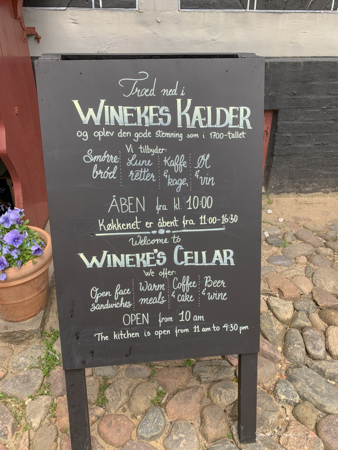 Træd ned i
WINEKES KÆLDER
og oplev den gode stemning som i 1700-tallet
Vi tilbyder
Smørre- Lune Kaffe Øl
brød retter & kage & vin
ÅBEN fra kl 10:00
Køkkenet er åbent fra 11:00-16:30
Welcome to
WINEKE'S CELLAR
We offer
Open face Warm Coffee Beer
sandwiches meals & cake & wine
OPEN from 10 am
The kitchen is open from 11 am to 4:30 pm